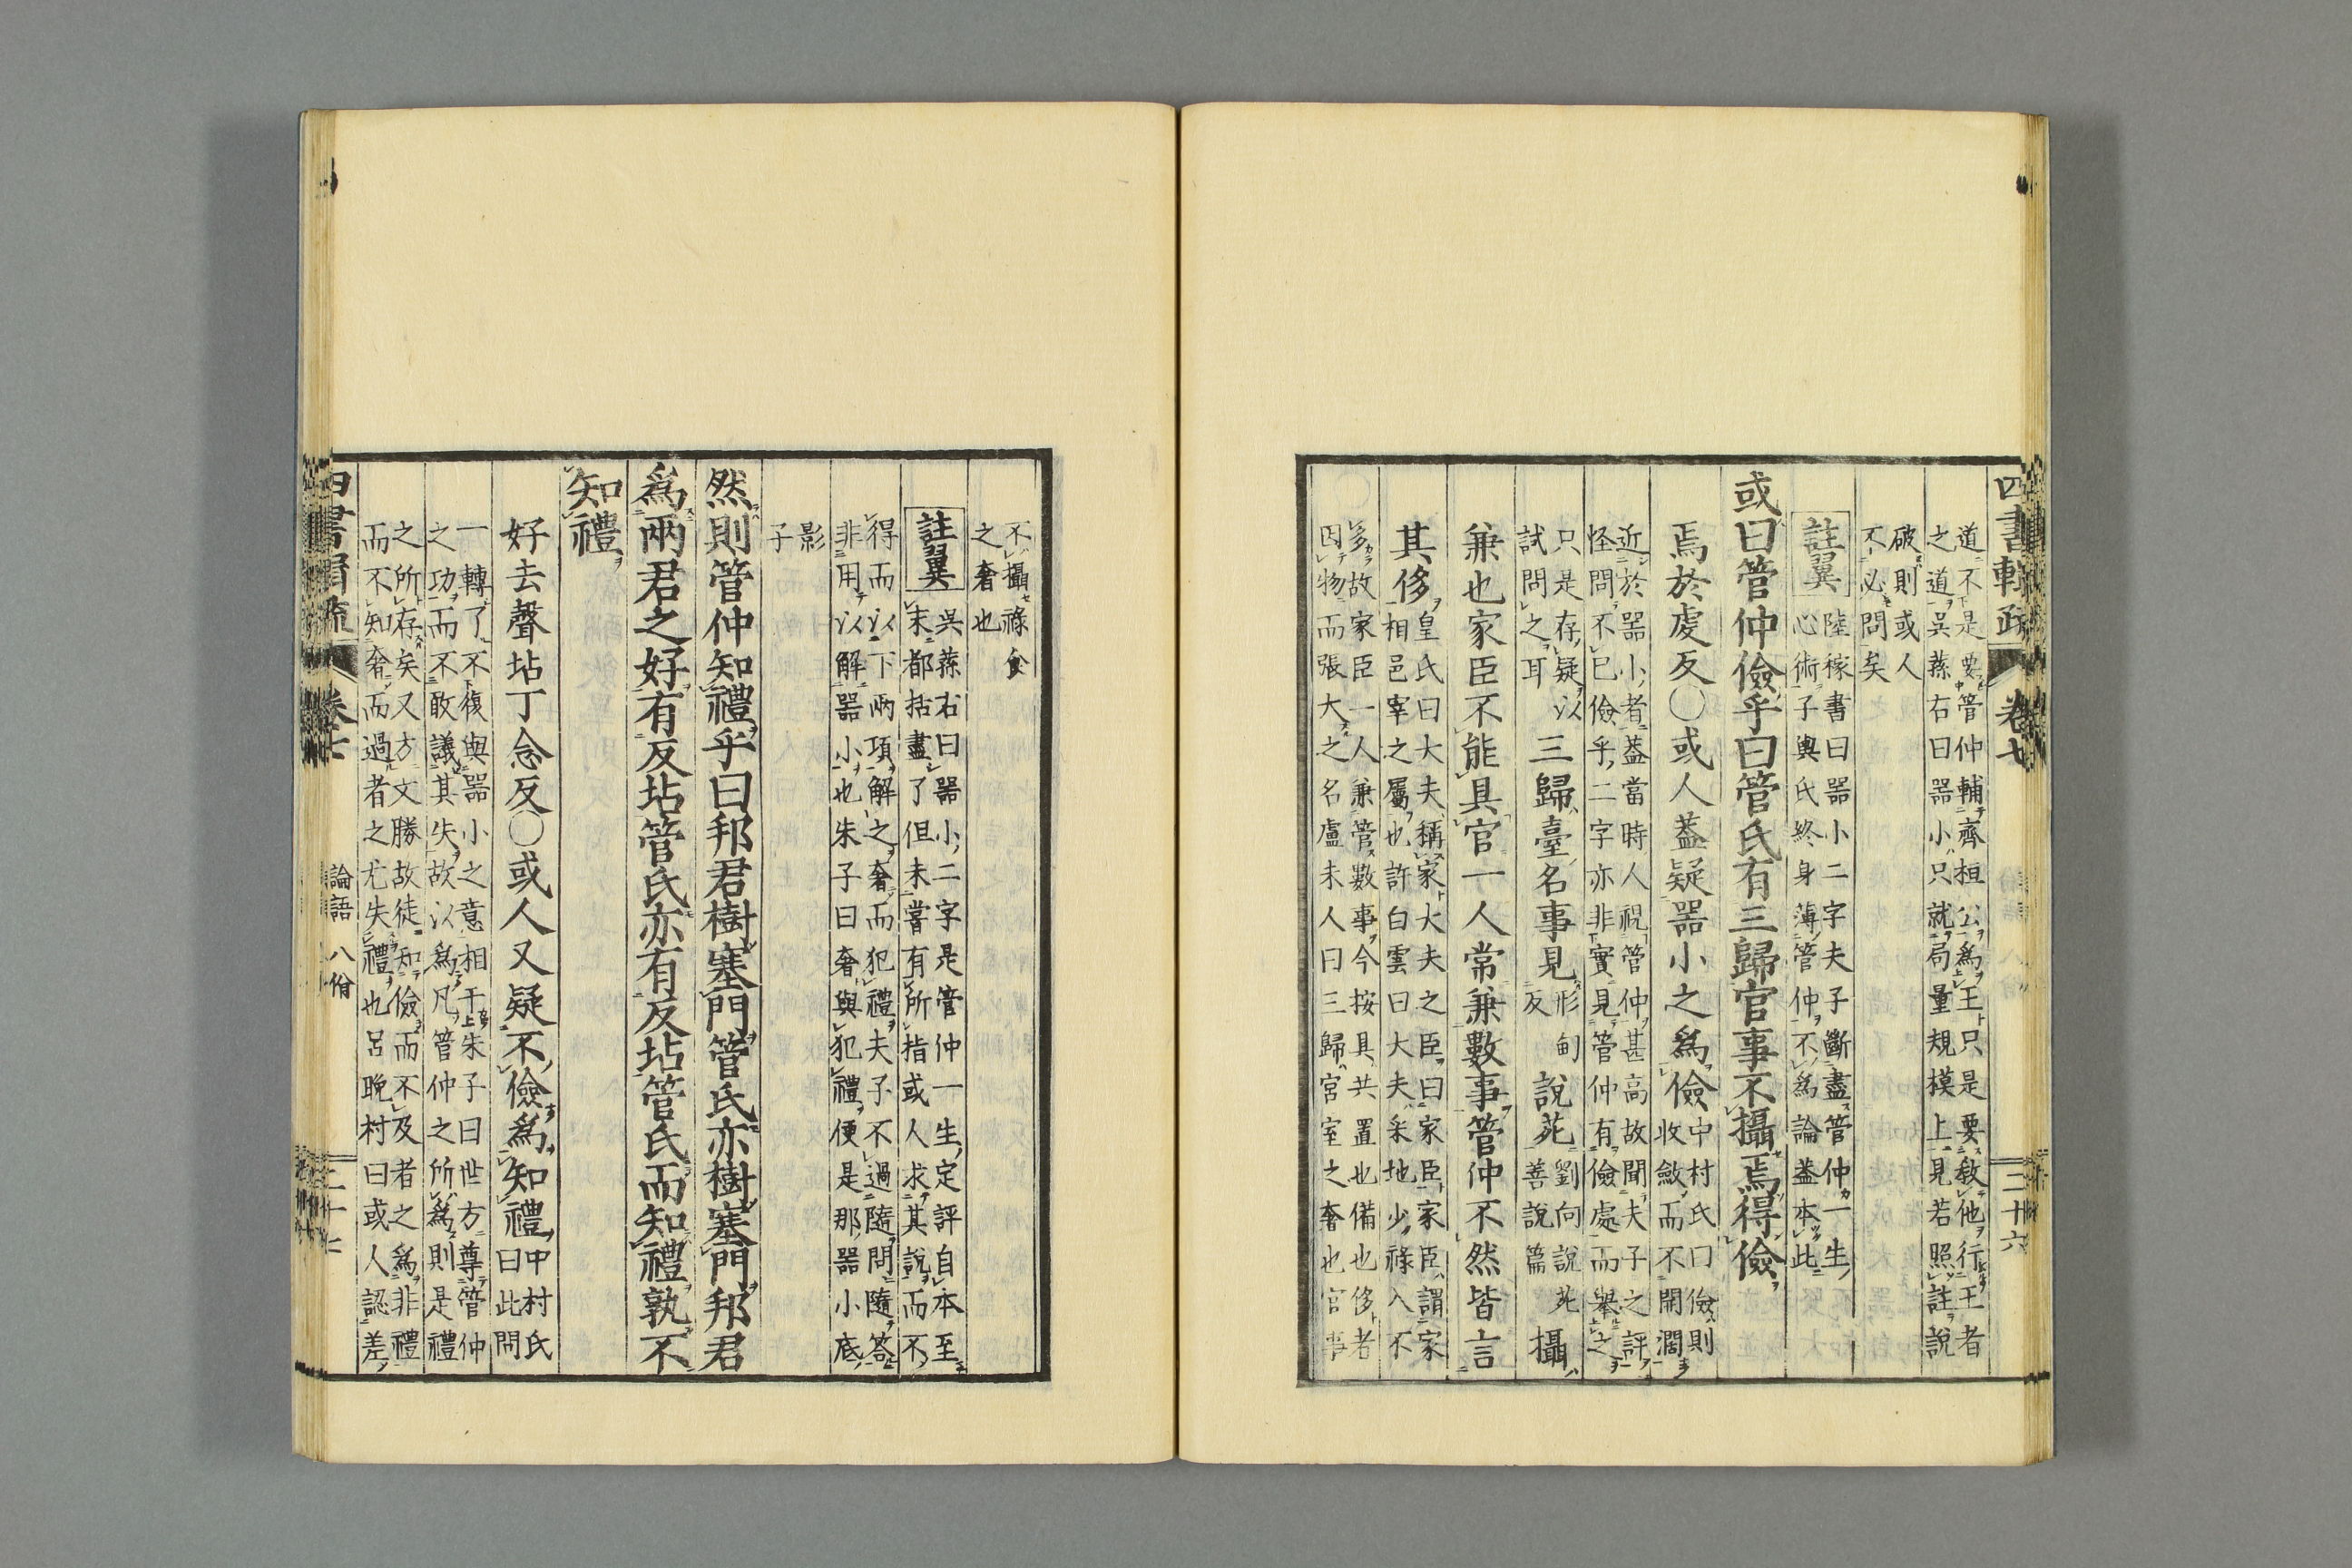 四書輯疏 卷七 二十六
道不是要管仲輔齊桓公爲王只是要教他行王者
之道吳蓀右曰器小只就局量規模上見若照註說
破則或人
不必問矣
註翼
陸稼書曰器小二字夫子斷盡管仲一生
心術子輿氏終身薄管仲不爲論蓋本此
或曰管仲儉乎曰管氏有三歸官事不攝焉得儉
焉於虔反○或人蓋疑器小之爲儉
中村氏曰儉則
收斂而不開濶
近於器小者蓋當時人視管仲甚高故聞夫子之評
怪問不已儉乎二字亦非實見管仲有儉處而舉之
只是存疑以
試問之耳
三歸臺名事見
形甸
反
說苑
劉向說苑
善說篇
攝
兼也家臣不能具官一人常兼數事管仲不然皆言
其侈
皇氏曰大夫稱家大夫之臣曰家臣家臣謂家
相邑宰之屬也許白雲曰大夫采地少祿入不
多故家臣一人兼管數事今按具共置也備也侈者
因物而張大之名盧未人曰三歸宮室之奢也官事
不攝祿食
之奢也
註翼
吳蓀右曰器小二字是管仲一生定評自本至
末都括盡了但未嘗有所指或人求其說而不
得而以下兩項解之奢而犯禮夫子不過隨問隨答
非用以解器小也朱子曰奢與犯禮便是那器小底
影
子
然則管仲知禮乎曰邦君樹塞門管氏亦樹塞門邦君
爲兩君之好有反坫管氏亦有反坫管氏而知禮孰不
知禮
好去聲坫丁念反○或人又疑不儉爲知禮
中村氏
曰此問
一轉了不復與器小之意相干朱子曰世方尊管仲
之功而不敢議其失故以爲凡管仲之所爲則是禮
之所存矣又方文勝故徒知儉而不及者之爲非禮
而不知奢而過者之尤失禮也呂晚村曰或人認差
四書輯疏 卷七 論語 八佾 二十七